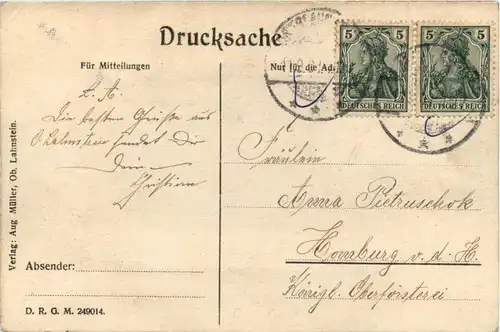 Drucksache
Für Mitteilungen
Nur für die
5 5
5 5
DEUTSCHES REICH
DEUTSCHES REICH
L. A.
Die besten Grüsse aus
O. Lahnstein sendet Dir
Dein
Christian
Fräulein
Anna Pietruschok
Homburg v. d. H.
Königl. Oberförsterei
Absender:
D. R. G. M. 249014.
Verlag: Aug Müller, Ob. Lahnstein.